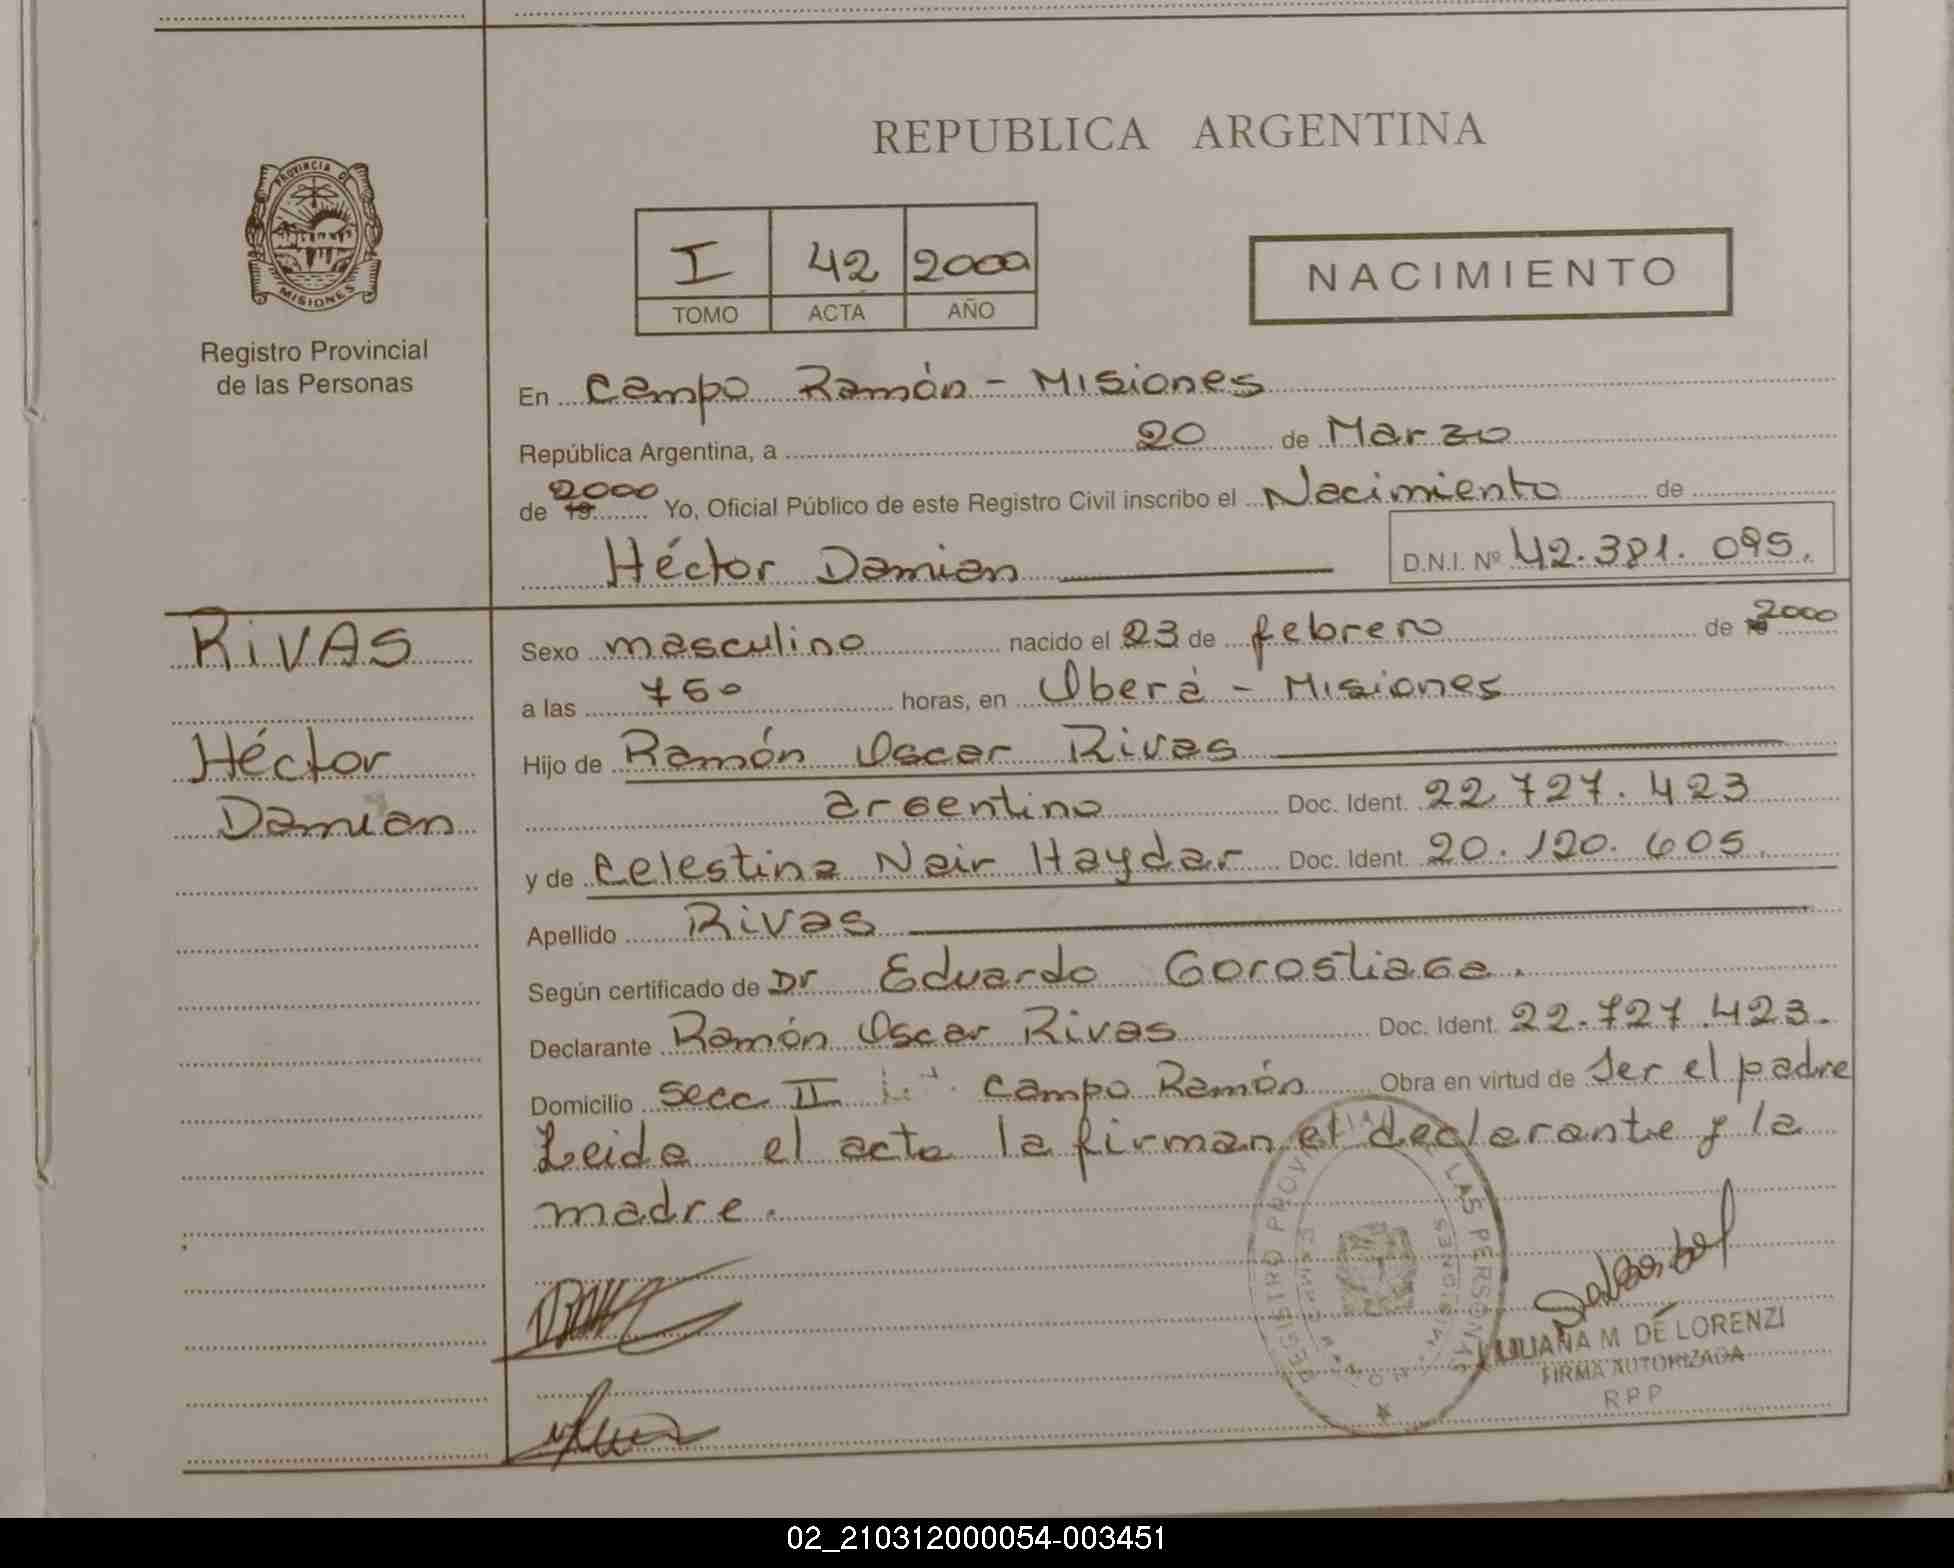 REPUBLICA ARGENTINA
PROVINCIA DE
MISIONES
Registro Provincial
de las Personas
I 42 2000
TOMO ACTA AÑO
NACIMIENTO
En Campo Ramón - Misiones
República Argentina, a 20 de Marzo
de 19 2000 Yo, Oficial Público de este Registro Civil inscribo el Nacimiento de
Héctor Damian D.N.I. Nº 42.381.095.
RIVAS
Héctor
Damian
Sexo masculino nacido el 23 de febrero de 2000
a las 750 horas, en Oberá - Misiones
Hijo de Ramón Oscar Rivas
argentino Doc. Ident. 22 727.423
y de Celestina Nair Haydar Doc. Ident. 20.120.605.
Apellido Rivas
Según certificado de Dr Eduardo Gorostiaga.
Declarante Ramón Oscar Rivas Doc. Ident. 22.727.423.
Domicilio Secc II Campo Ramón Obra en virtud de Ser el padre
Leida el acta la firman el declarante y la
madre.
REGISTRO PROVINCIAL DE LAS PERSONAS
MISIONES
LILIANA M DE LORENZI
FIRMA AUTORIZADA
RPP
02_210312000054-003451